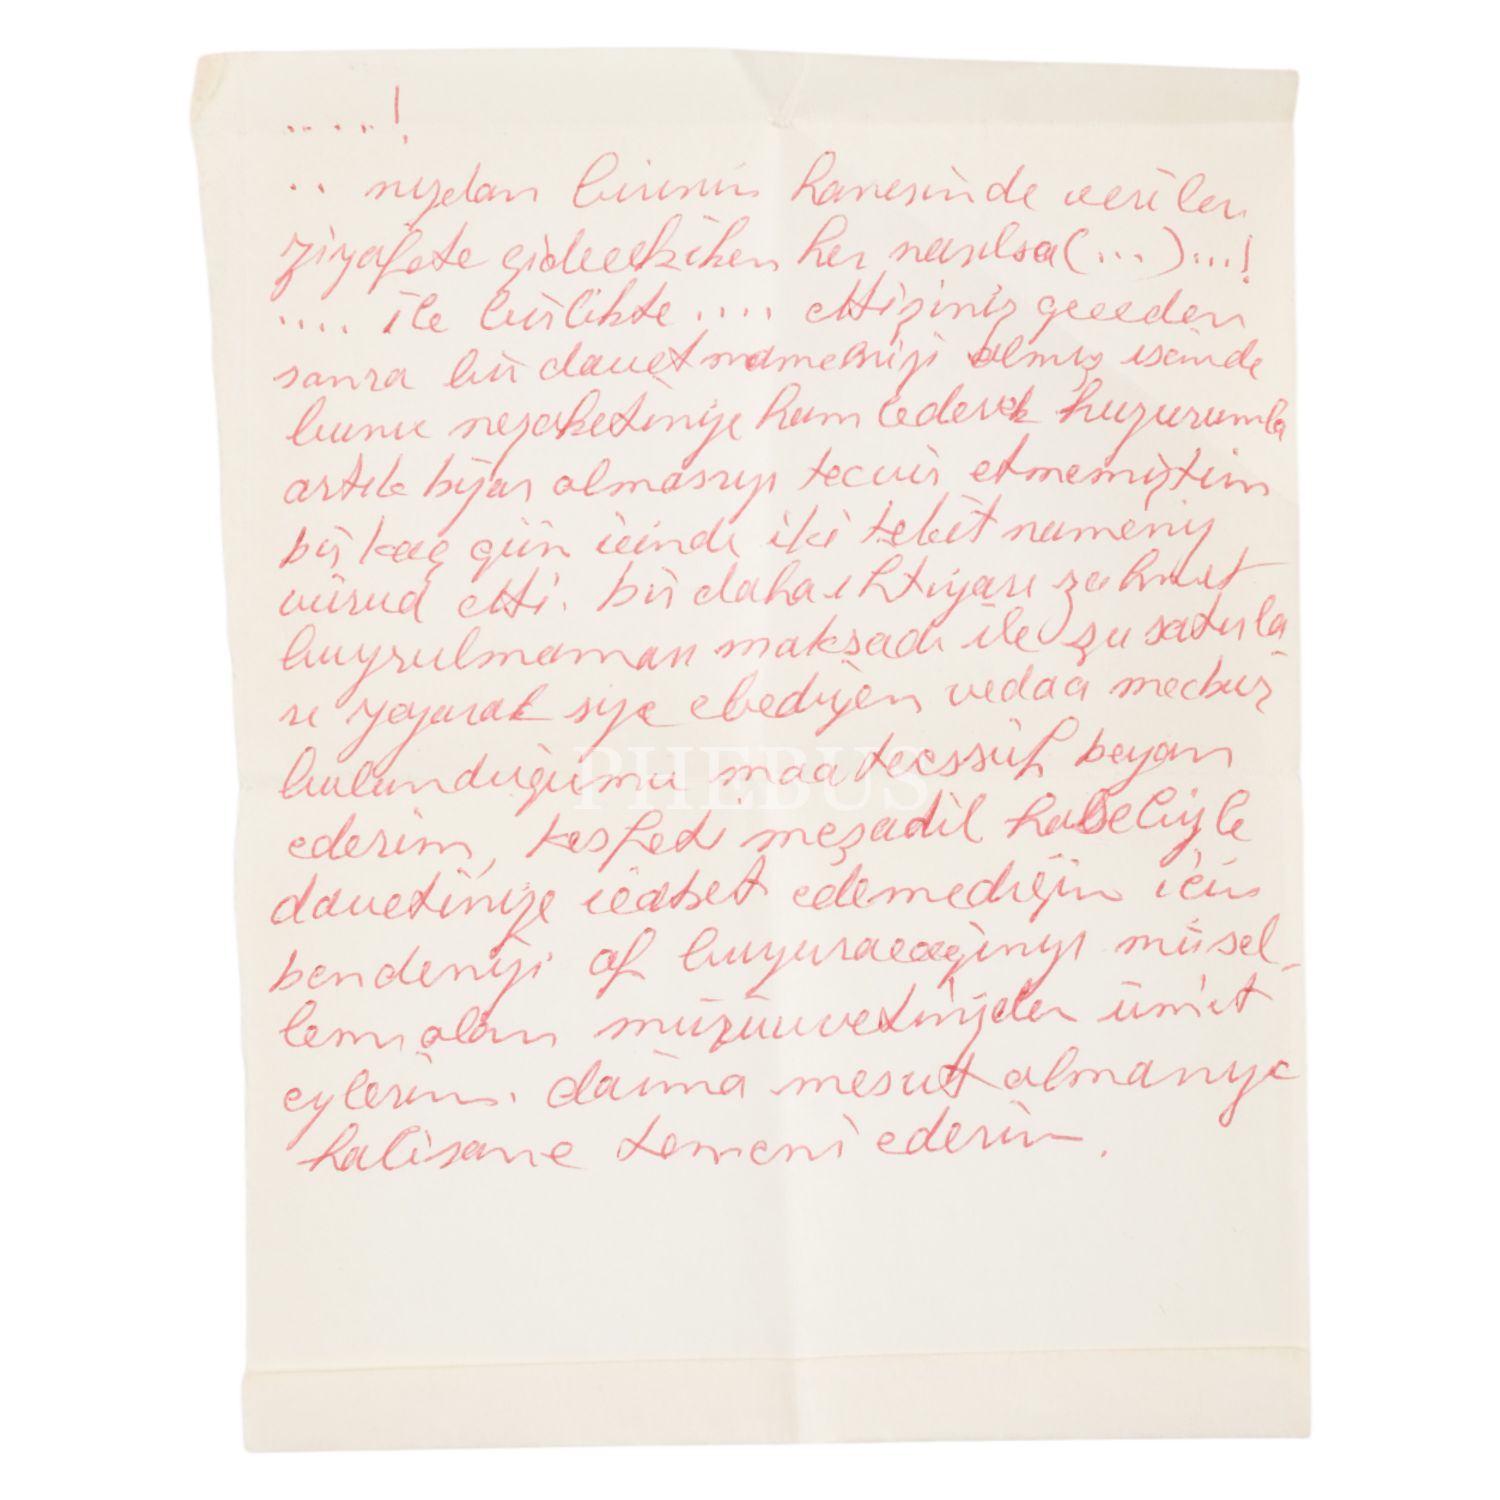 ....!
.. nizdan birinin hanesinde verilen
ziyafete gidecekiken her nasılsa (...)...!
.... ile birlikte .... ettiğiniz geceden
sonra bir davetnamenizi almış isemde
bunu nezaketinize hamlederek huzurumla
artık bizar olmasnızı tecviz etmemiştim
bir kaç gün içinde iki tekit nameniz
vürud etti. bir daha ihtiyarı zahmet
buyrulmaması maksadı ile şu satırla
rı yazarak size ebediyen vedaa mecbur
bulunduğumu maateessüf beyan
ederim,
davetinize icabet edemediğim için
bendenizi af buyuracağınızı müsel-
lem olan mürüvvetinizden ümit
eylerim. daima mesut olmanızı
halisane temeni ederim.
PHEBUS